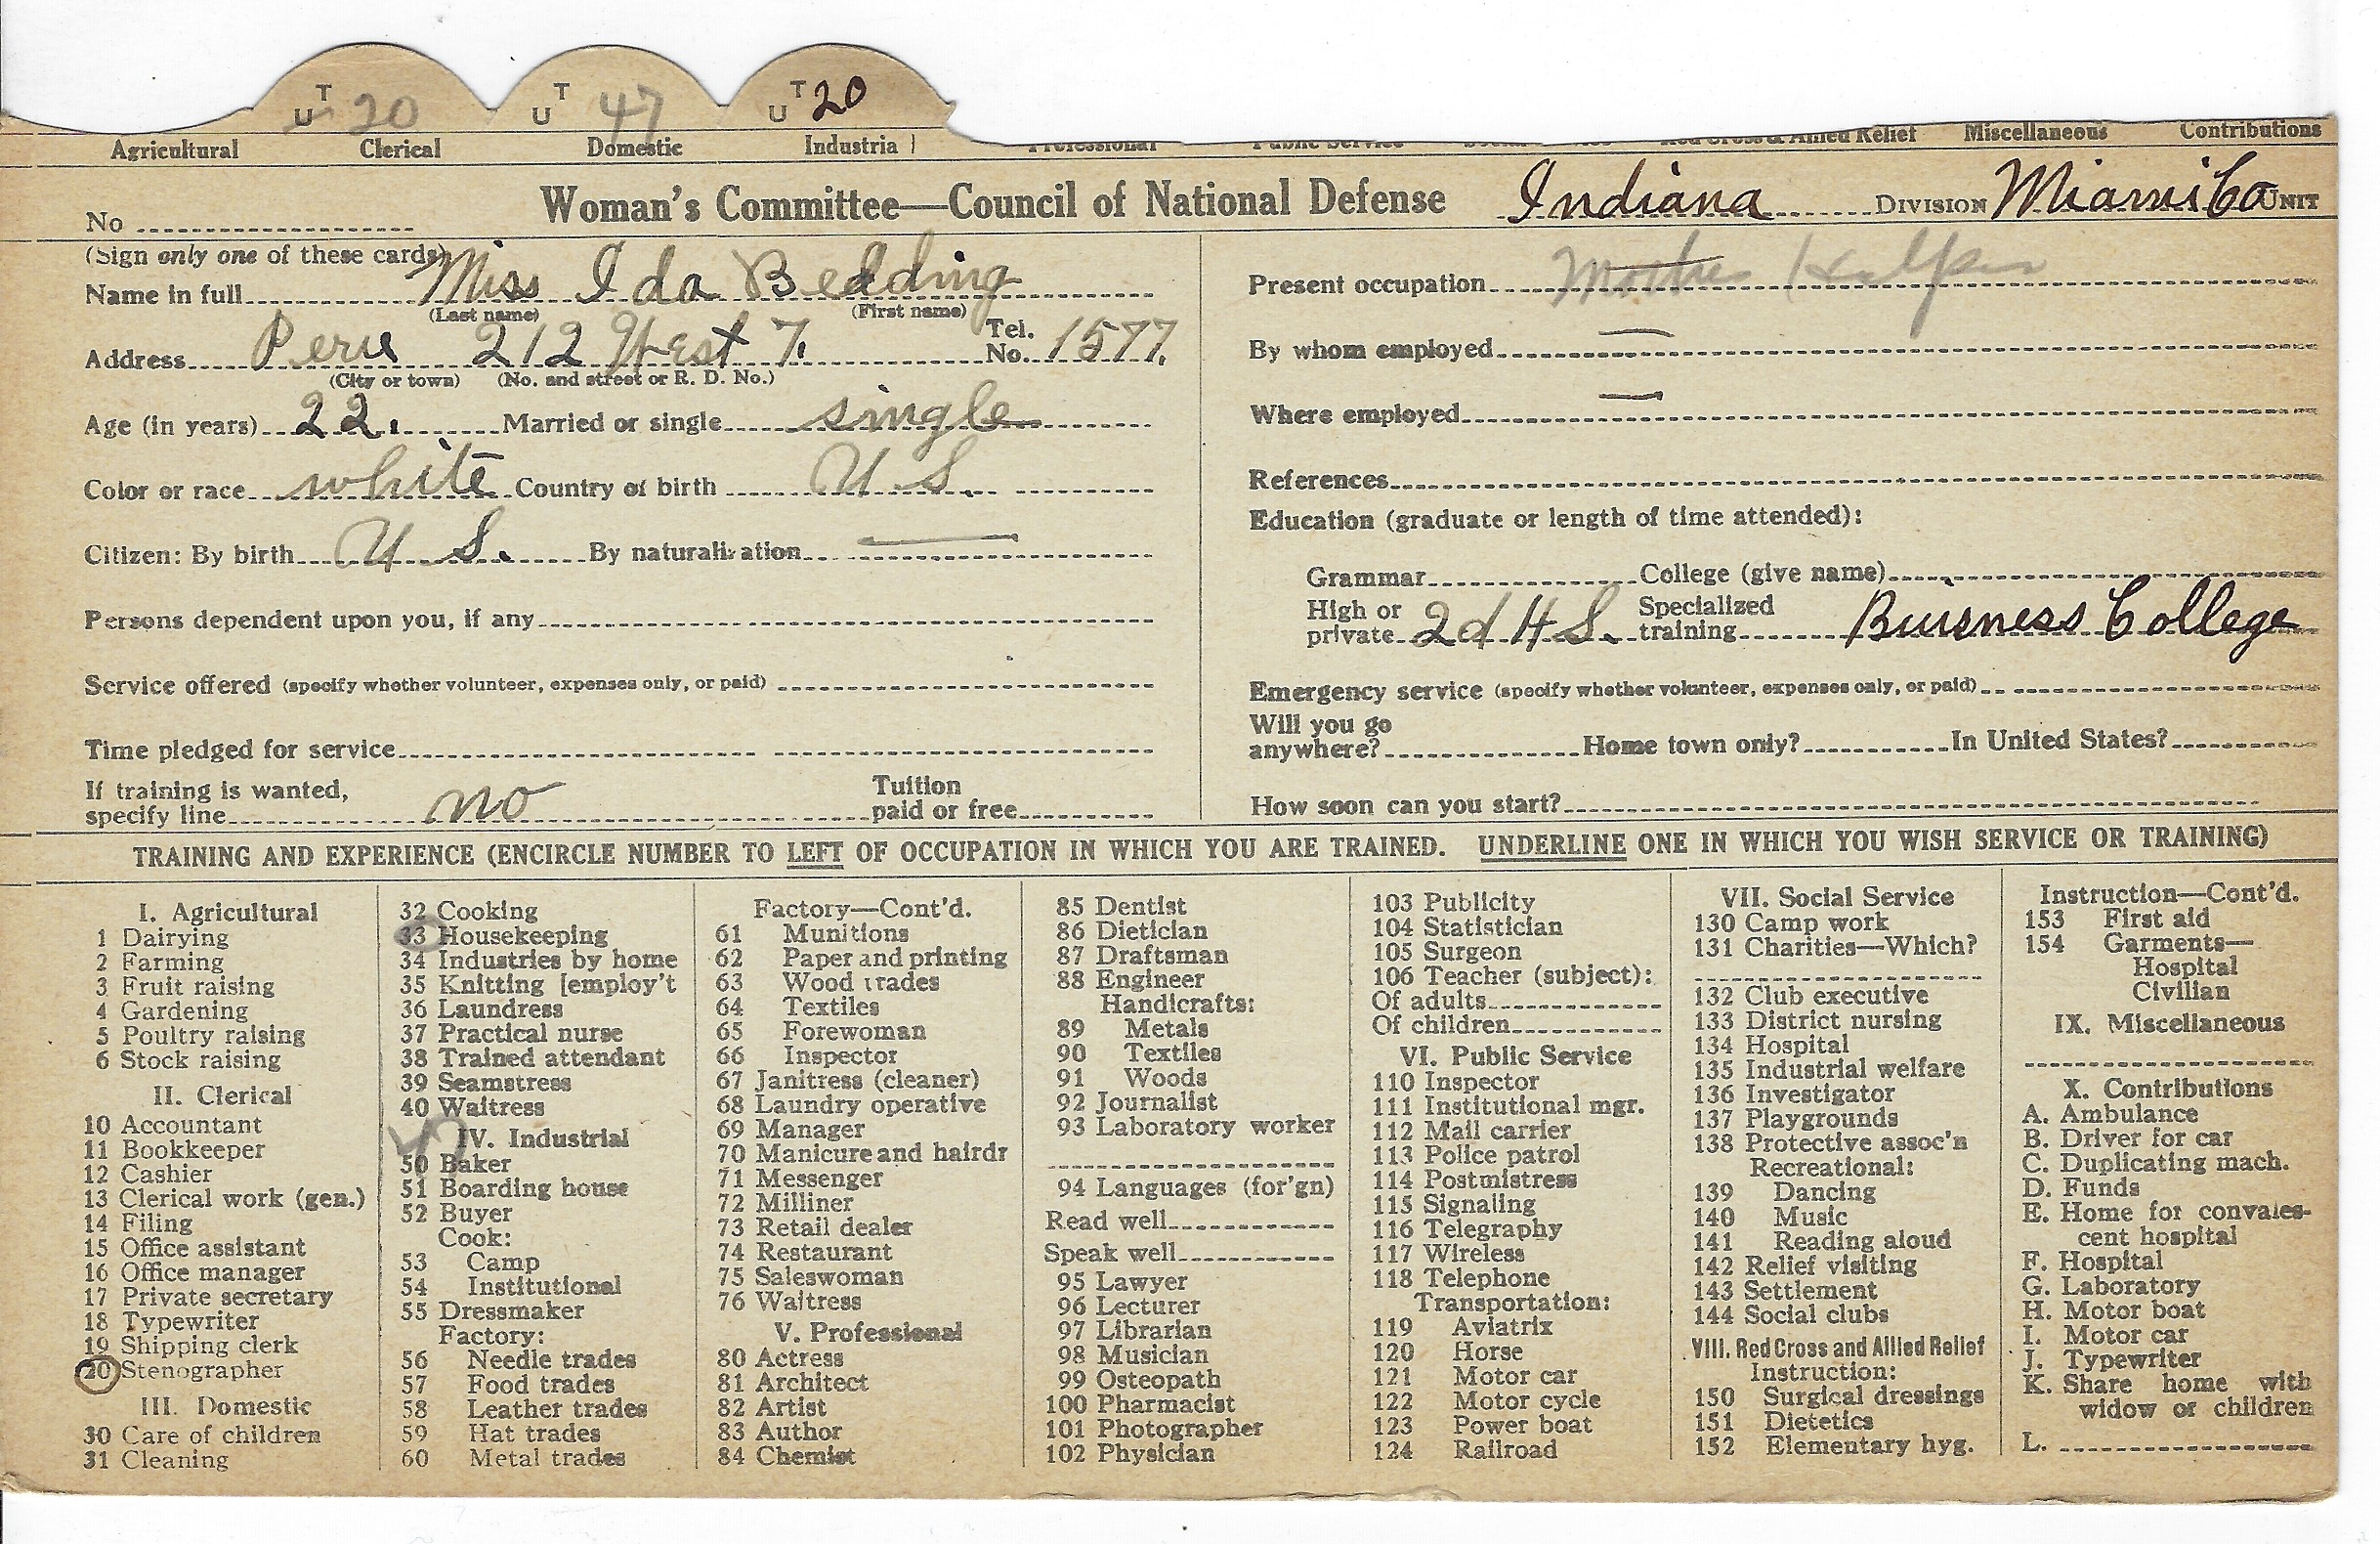 U T 20 U T 47 U T 20
Agricultural Clerical Domestic Industrial Professional Public Service Red Cross & Allied Relief Miscellaneous Contributions
No
Woman's Committee—Council of National Defense Indiana DIVISION Miami Co UNIT
(Sign only one of these cards)
Name in full Miss Ida Bedding
(Last name) (First name)
Address Peru 212 West 7. Tel. No. 1577.
(City or town) (No. and street or R. D. No.)
Age (in years) 22. Married or single single
Color or race white Country of birth U S.
Citizen: By birth U S. By naturalization —
Persons dependent upon you, if any
Service offered (specify whether volunteer, expenses only, or paid)
Time pledged for service
If training is wanted,
specify line no Tuition paid or free
Present occupation Mother Helper
By whom employed —
Where employed —
References
Education (graduate or length of time attended):
Grammar College (give name)
High or private 2d H S. Specialized training Buisness College
Emergency service (specify whether volunteer, expenses only, or paid)
Will you go
anywhere? Home town only? In United States?
How soon can you start?
TRAINING AND EXPERIENCE (ENCIRCLE NUMBER TO LEFT OF OCCUPATION IN WHICH YOU ARE TRAINED. UNDERLINE ONE IN WHICH YOU WISH SERVICE OR TRAINING)
I. Agricultural
1 Dairying
2 Farming
3 Fruit raising
4 Gardening
5 Poultry raising
6 Stock raising
II. Clerical
10 Accountant
11 Bookkeeper
12 Cashier
13 Clerical work (gen.)
14 Filing
15 Office assistant
16 Office manager
17 Private secretary
18 Typewriter
19 Shipping clerk
20 Stenographer
III. Domestic
30 Care of children
31 Cleaning
32 Cooking
33 Housekeeping
34 Industries by home
35 Knitting [employ't
36 Laundress
37 Practical nurse
38 Trained attendant
39 Seamstress
40 Waitress
IV. Industrial
50 Baker
51 Boarding house
52 Buyer
Cook:
53 Camp
54 Institutional
55 Dressmaker
Factory:
56 Needle trades
57 Food trades
58 Leather trades
59 Hat trades
60 Metal trades
Factory—Cont'd.
61 Munitions
62 Paper and printing
63 Wood trades
64 Textiles
65 Forewoman
66 Inspector
67 Janitress (cleaner)
68 Laundry operative
69 Manager
70 Manicure and hairdr
71 Messenger
72 Milliner
73 Retail dealer
74 Restaurant
75 Saleswoman
76 Waitress
V. Professional
80 Actress
81 Architect
82 Artist
83 Author
84 Chemist
85 Dentist
86 Dietician
87 Draftsman
88 Engineer
Handicrafts:
89 Metals
90 Textiles
91 Woods
92 Journalist
93 Laboratory worker
94 Languages (for'gn)
Read well
Speak well
95 Lawyer
96 Lecturer
97 Librarian
98 Musician
99 Osteopath
100 Pharmacist
101 Photographer
102 Physician
103 Publicity
104 Statistician
105 Surgeon
106 Teacher (subject):
Of adults
Of children
VI. Public Service
110 Inspector
111 Institutional mgr.
112 Mail carrier
113 Police patrol
114 Postmistress
115 Signaling
116 Telegraphy
117 Wireless
118 Telephone
Transportation:
119 Aviatrix
120 Horse
121 Motor car
122 Motor cycle
123 Power boat
124 Railroad
VII. Social Service
130 Camp work
131 Charities—Which?
132 Club executive
133 District nursing
134 Hospital
135 Industrial welfare
136 Investigator
137 Playgrounds
138 Protective assoc'n
Recreational:
139 Dancing
140 Music
141 Reading aloud
142 Relief visiting
143 Settlement
144 Social clubs
VIII. Red Cross and Allied Relief
Instruction:
150 Surgical dressings
151 Dietetics
152 Elementary hyg.
Instruction—Cont'd.
153 First aid
154 Garments—
Hospital
Civilian
IX. Miscellaneous
X. Contributions
A. Ambulance
B. Driver for car
C. Duplicating mach.
D. Funds
E. Home for convales-
cent hospital
F. Hospital
G. Laboratory
H. Motor boat
I. Motor car
J. Typewriter
K. Share home with
widow or children
L.